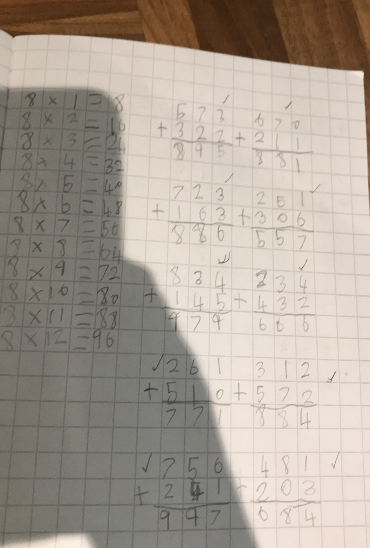 8 × 1 = 8
8 × 2 = 16
8 × 3 = 24
8 × 4 = 32
8 × 5 = 40
8 × 6 = 48
8 × 7 = 56
8 × 8 = 64
8 × 9 = 72
8 × 10 = 80
8 × 11 = 88
8 × 12 = 96
573 ✓ 670 ✓
+322 +211
895 881
723 ✓ 251 ✓
+163 +306
886 557
834 ✓ 234 ✓
+145 +432
979 666
✓ 261 312 ✓
+510 +572
771 884
✓ 756 481 ✓
+241 +203
997 684